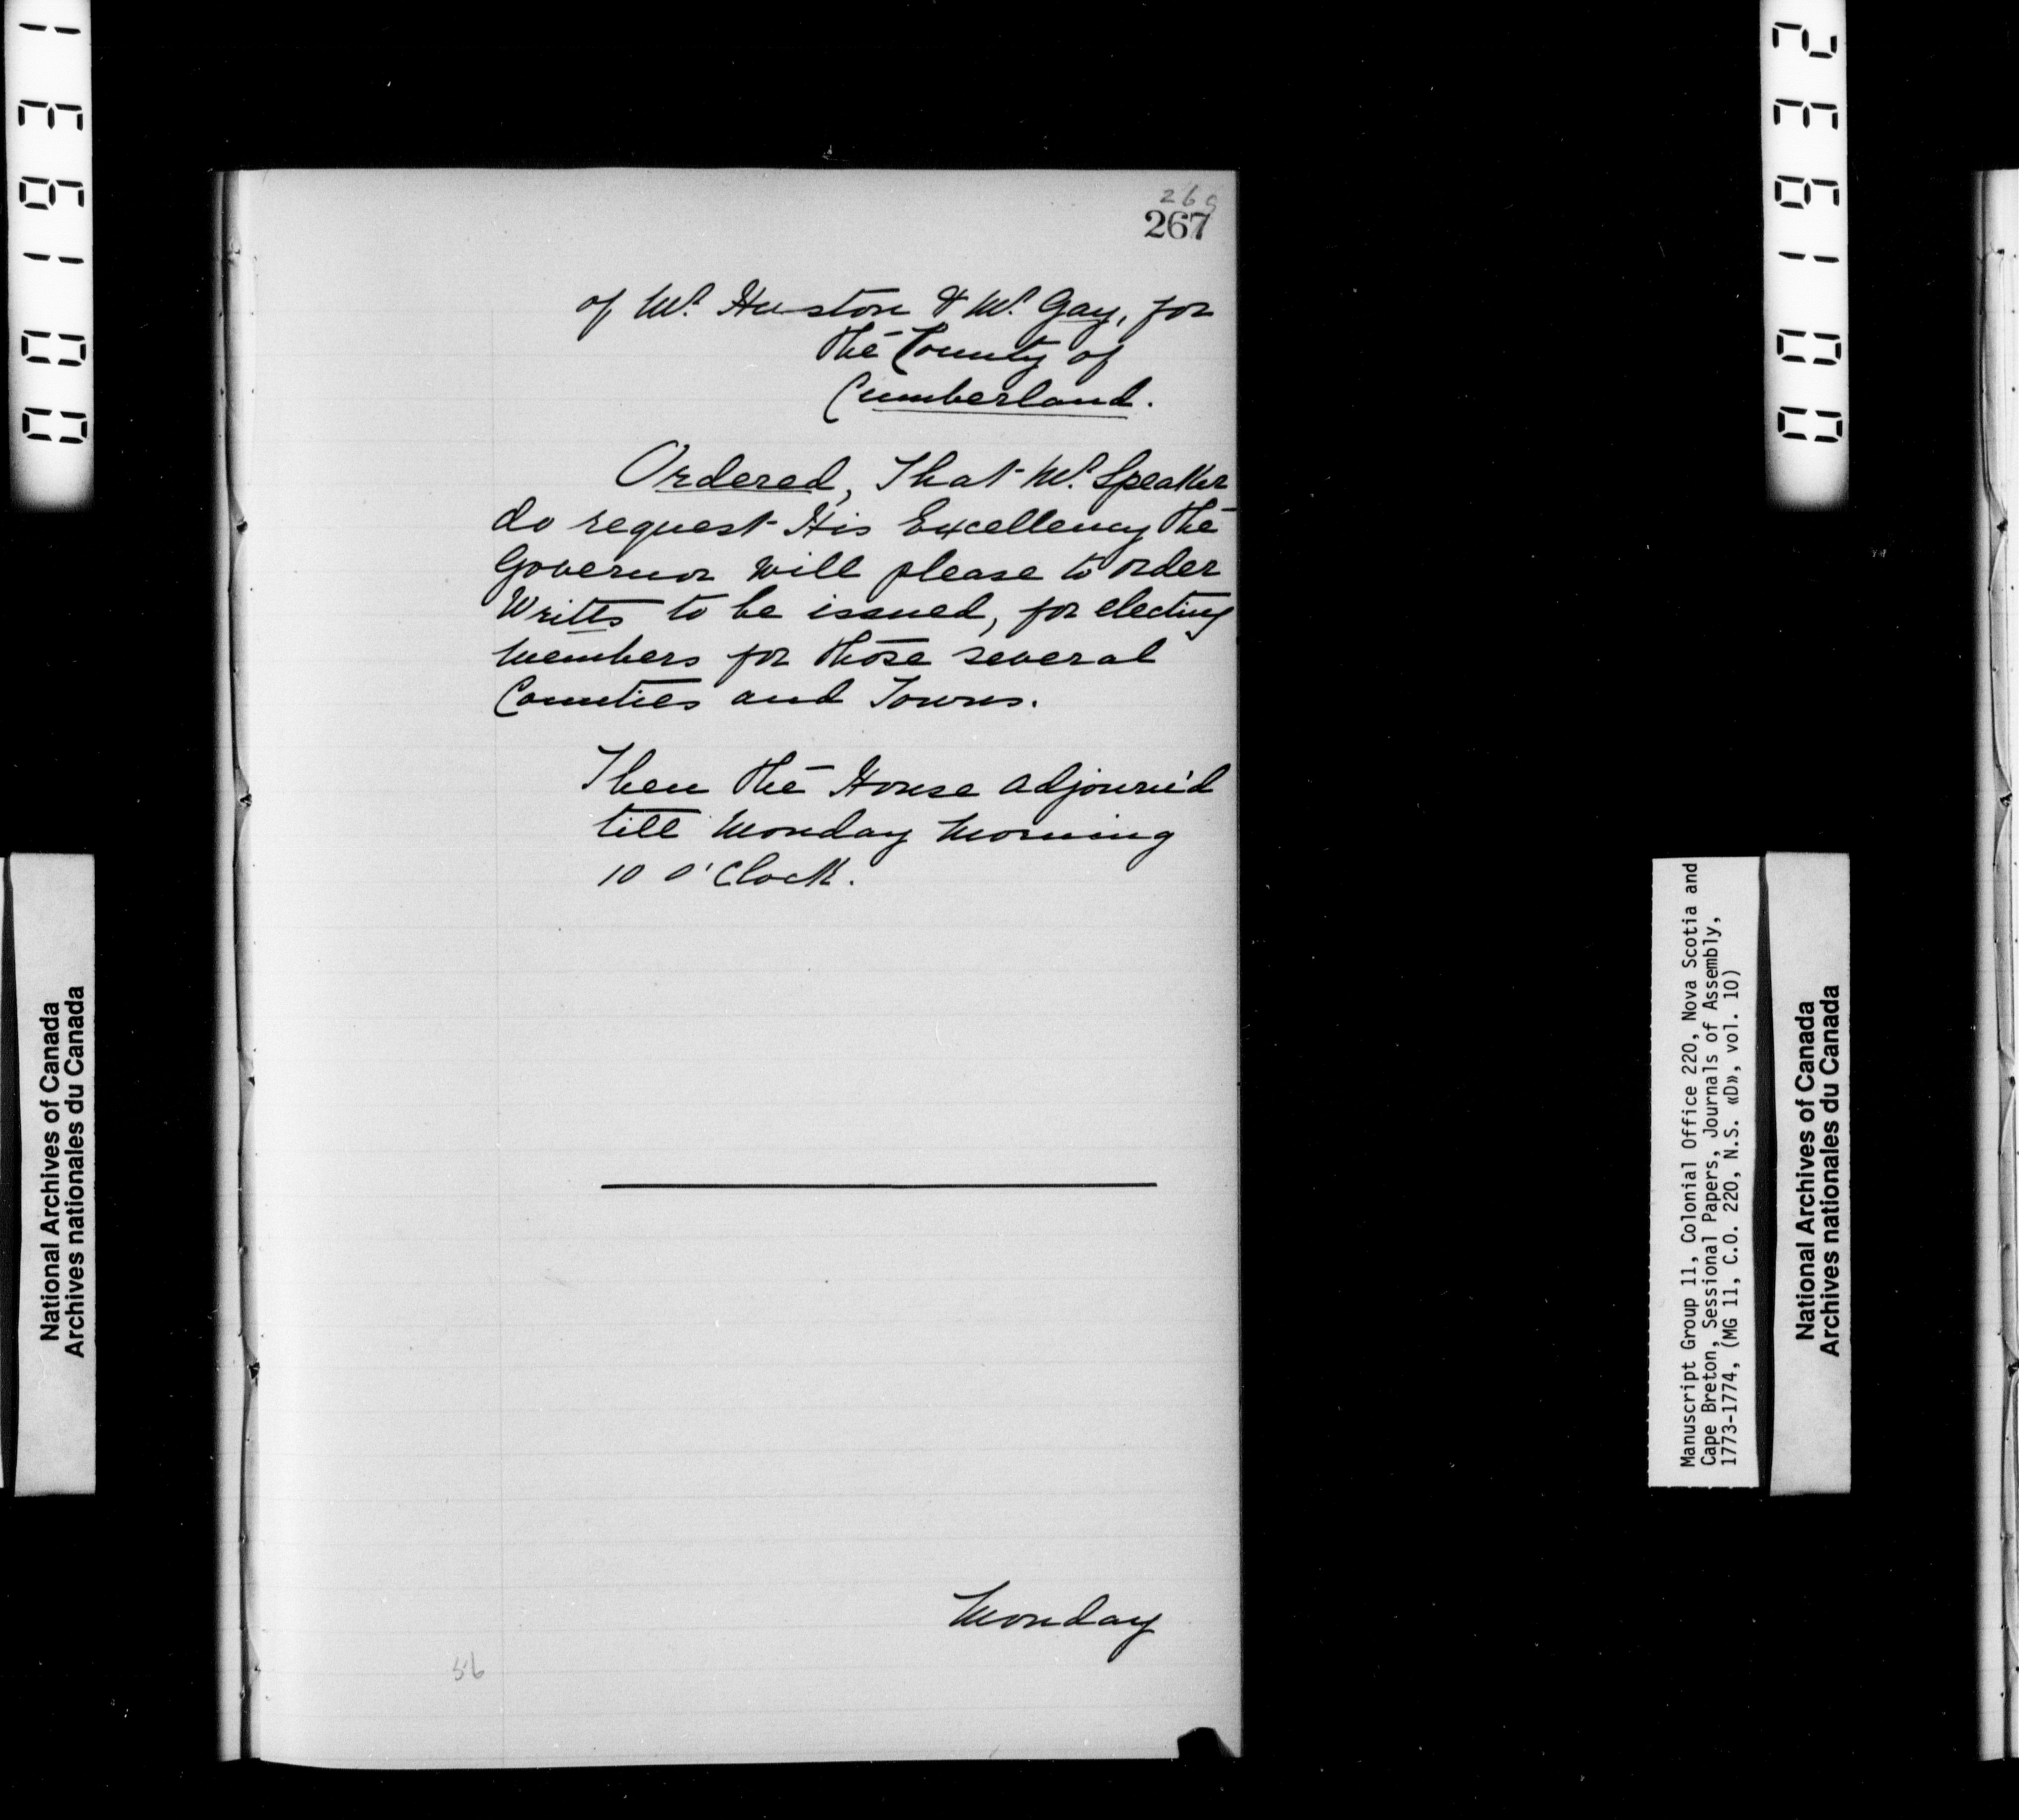 265
267
of Mr. Huston & Mr. Gay, for
the County of
Cumberland.
Ordered, That Mr. Speaker
do request His Excellency the
Governor will please to order
Writts to be issued, for electing
Members for those several
Counties and Towns.
Then the House adjourn'd
till Monday Morning
10 O'Clock.
Monday
56
001931
National Archives of Canada
Archives nationales du Canada
001932
Manuscript Group 11, Colonial Office 220, Nova Scotia and
Cape Breton, Sessional Papers, Journals of Assembly,
1773-1774, (MG 11, C.O. 220, N.S. «D», vol. 10)
National Archives of Canada
Archives nationales du Canada